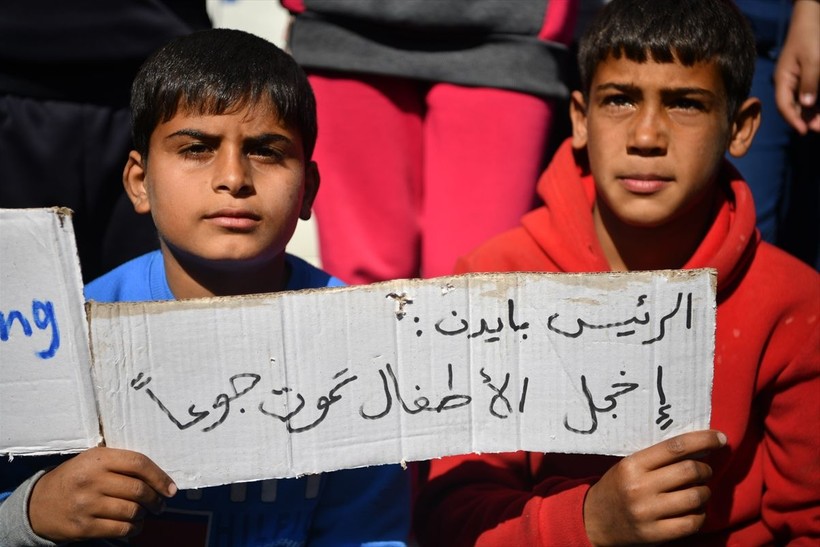 الرئيس بايدن :
إخجل الأطفال تموت جوعاً
ng